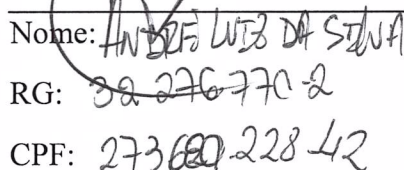 Nome: ANDRÉ LUIZ DA SILVA
RG: 32 276 770-2
CPF: 273680.228-42